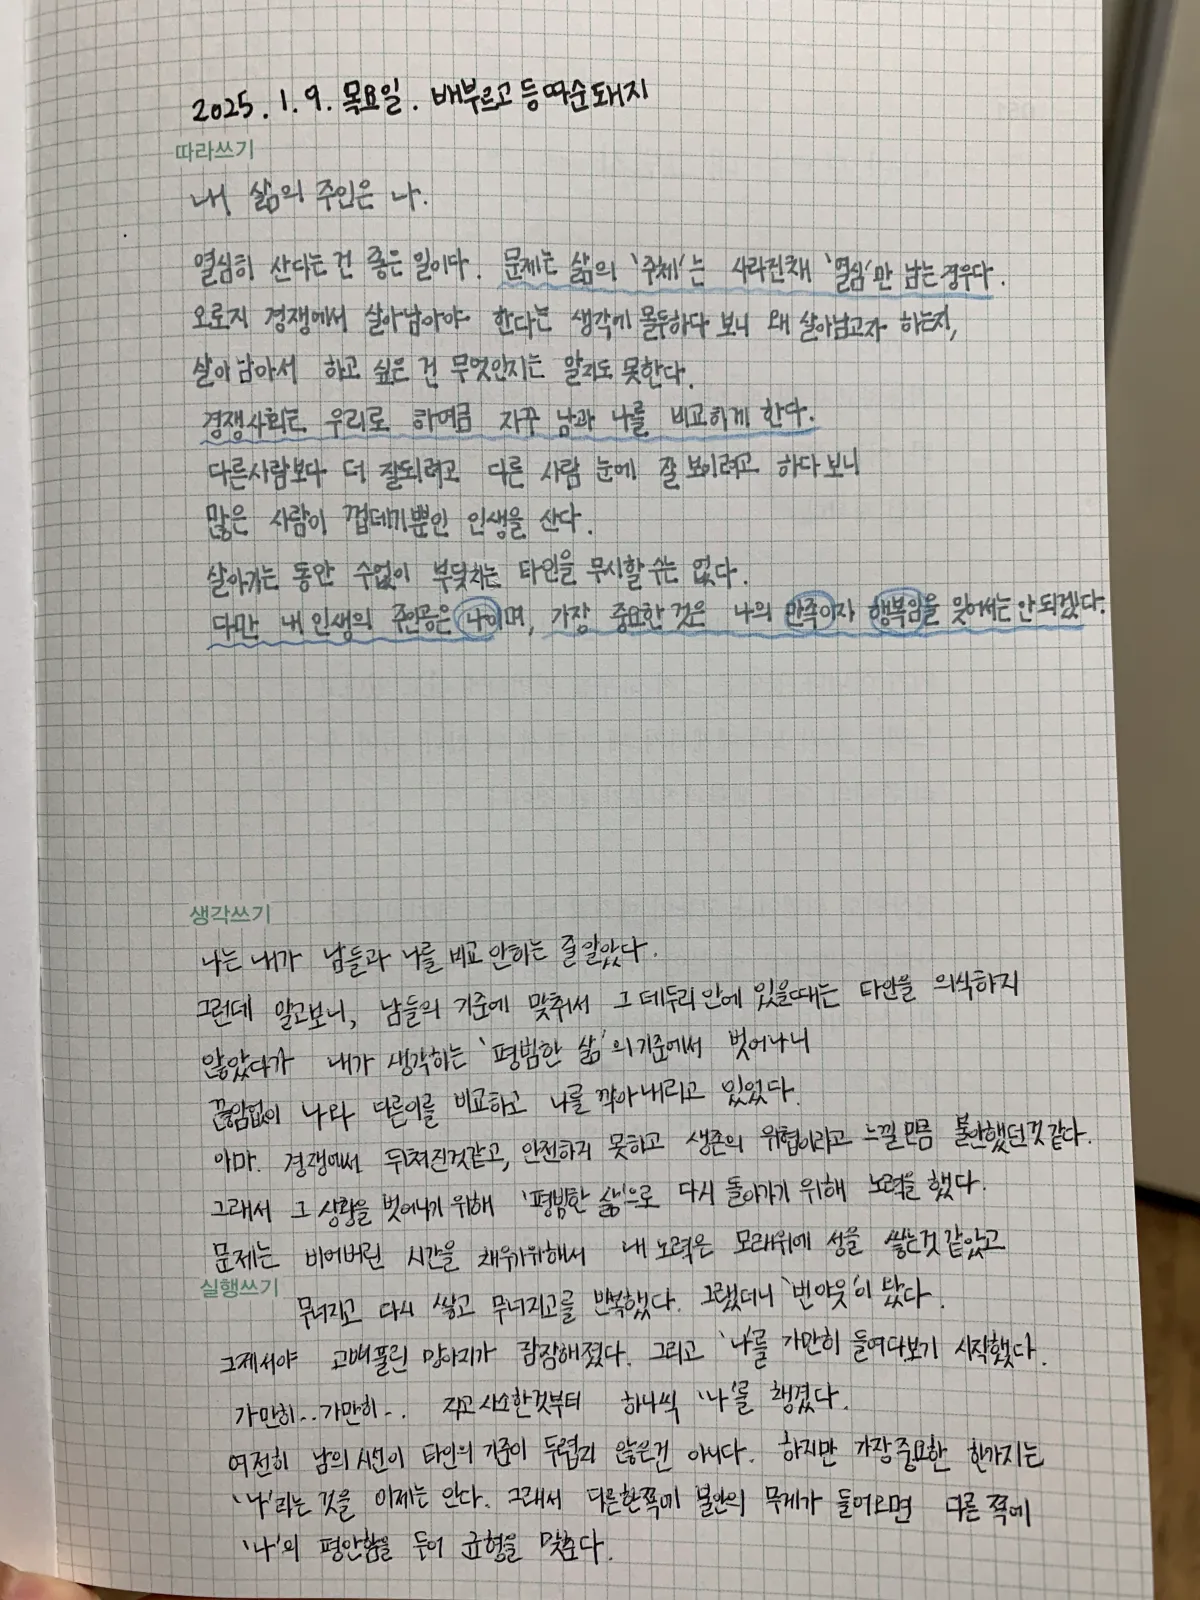 2025. 1. 9. 목요일. 배부르고 등따순돼지
따라쓰기
내 삶의 주인은 나.
열심히 산다는 건 좋은 일이다. 문제는 삶의 '주체'는 사라진채 '열심'만 남는 경우다.
오로지 경쟁에서 살아남아야 한다는 생각에 몰두하다 보니 왜 살아남고자 하는지,
살아남아서 하고 싶은 건 무엇인지는 알지도 못한다.
경쟁사회는 우리로 하여금 자꾸 남과 나를 비교하게 한다.
다른사람보다 더 잘되려고 다른 사람 눈에 잘 보이려고 하다보니
많은 사람이 껍데기뿐인 인생을 산다.
살아가는 동안 수없이 부딪치는 타인을 무시할 수는 없다.
다만 내 인생의 주인공은 나이며, 가장 중요한 것은 나의 만족이자 행복임을 잊어서는 안 되겠다.
생각쓰기
나는 내가 남들과 나를 비교 안하는 줄 알았다.
그런데 알고보니, 남들의 기준에 맞춰서 그 테두리 안에 있을때는 타인을 의식하지
않았다가 내가 생각하는 '평범한 삶'의 기준에서 벗어나니
끊임없이 나와 다른이를 비교하고 나를 깍아내리고 있었다.
아마. 경쟁에서 뒤쳐진것같고, 안전하지 못하고 생존의 위협이라고 느낄만큼 불안했던것 같다.
그래서 그 상황을 벗어나기 위해 '평범한 삶'으로 다시 돌아가기 위해 노력을 했다.
문제는 비어버린 시간을 채우기위해서 내 노력은 모래위에 성을 쌓는것 같았고
실행쓰기
무너지고 다시 쌓고 무너지고를 반복했다. 그랬더니 '번아웃'이 왔다.
그제서야 고삐풀린 망아지가 잠잠해졌다. 그리고 '나'를 가만히 들여다보기 시작했다.
가만히.. 가만히.. 작고 사소한것부터 하나씩 '나'를 챙겼다.
여전히 남의 시선이 타인의 기준이 두렵지 않은건 아니다. 하지만 가장 중요한 한가지는
'나'라는 것을 이제는 안다. 그래서 다른한쪽에 불안의 무게가 들어오면 다른 쪽에
'나'의 평안함을 두어 균형을 맞춘다.